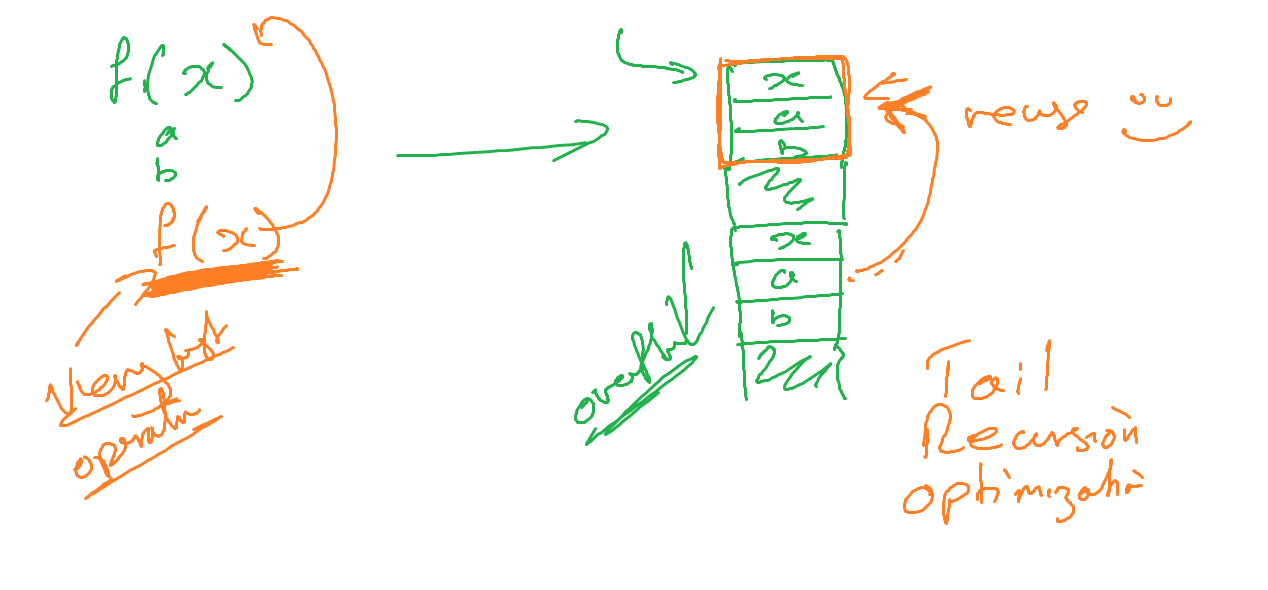 f(x)
a
b
f(x)
Very last
operation
x
a
b
x
a
b
overflow
reuse
Tail
Recursion
optimization